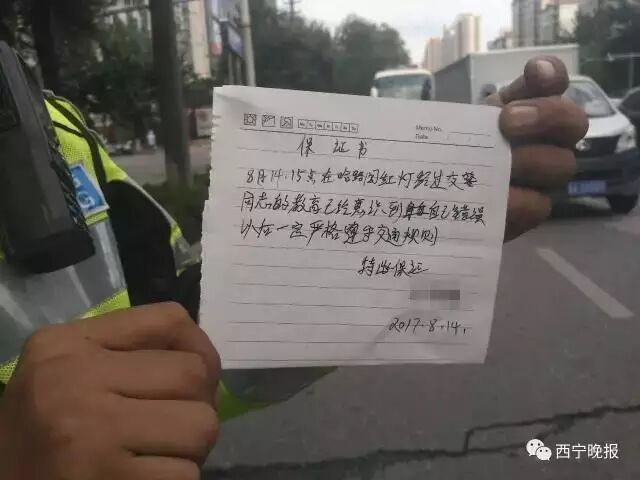 Memo No.
Date
保证书
8月14.15点在哈路闯红灯经过交警
同志的教育已经意识到自己错误
以在一定严格遵守交通规则
特此保证
2017.8.14.
西宁晚报